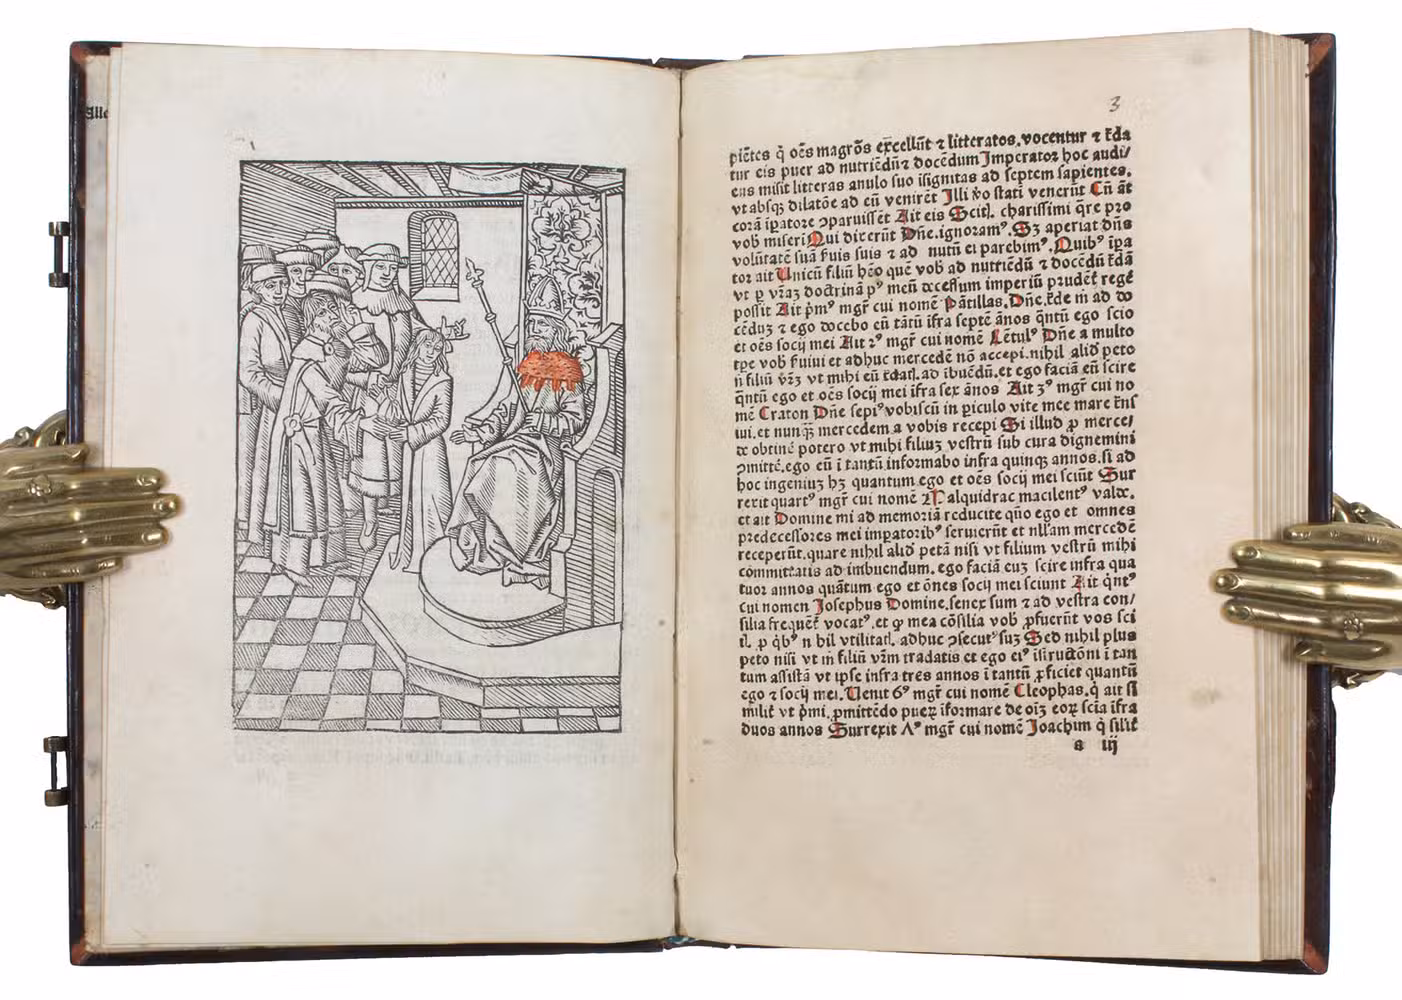 Alle
3
piētes q̇ oēs magr̄os excellūt ⁊ litteratos. vocentur ⁊ t̄da
tur eis puer ad nutriēdū⁊ docēdum Imperator hoc audi/
ens misit litteras anulo suo īsignitas ad septem sapientes.
vt absqꝫ dilatōe ad eū venirēt Illi v̊o statī venerūt Cū āt
corā īpatore ꝯparuissēt Ait eis Scitꝭ. charissimi q̄re pro
vob miseri Qui dixerūt Dn̄e. ignoramꝰ. Sꝫ aperiat dn̄s
volūtatē suā ẜuis suis ⁊ ad nutū ei parebimꝰ. Quibꝰ īpa
tor ait Unicū filiū hēo quē vob ad nutriēdū ⁊ docēdū t̄dā
vt ꝑ vr̄aꝫ doctrinā pꝰ meū decessum imperiū prudēt̄ regē
possit Ait pͥmꝰ mgr̄ cui nomē Pātillas. Dn̄e. t̄de m ad do
cēduꝫ ⁊ ego docebo eū tātū īfra septē ānos q̄ntū ego scio
et oēs socij mei Ait 2ꝰ mgr̄ cui nomē Lētulꝰ Dn̄e a multo
tp̄e vob ẜuiui et adhuc mercedē nō accepi. nihil alid peto
n̄ filiū vr̄ꝫ vt mihi eū t̄datꝭ. ad ībuēdū. et ego faciā eū scire
q̄ntū ego et oēs socij mei īfra sex ānos Ait 3ꝰ mgr̄ cui no
mē Craton Dn̄e sepiꝰ vobiscū in ꝑiculo vite mee mare t̄ns
iui. et nunq̄ꝫ mercedem a vobis recepi Si illud ꝓ merce/
de obtinē potero vt mihi filiuꝫ vestrū sub cura dignemini
ꝯmittē. ego eū ī tantū informabo infra quinqꝫ annos. si ad
hoc ingeniuꝫ hꝫ quantum ego et oēs socij mei sciunt Sur
rexit quartꝰ mgr̄ cui nomē Malquidrac macilentꝰ valde.
et ait Domine mi ad memoriā reducite qūo ego et omnes
predecessores mei impatoribꝰ seruierūt et nllam mercedē
receperūt. quare nihil alid petā nisi vt filium vestrū mihi
committatis ad imbuendum. ego faciā euꝫ scire infra qua
tuor annos quātum ego et ōnes socij mei sciunt Ait q̄ntꝰ
cui nomen Josephus Domine. senex sum ⁊ ad vestra con/
silia frequēt̄ vocatꝰ. et qꝫ mea cōsilia vob ꝓfuerūt vos sci
tꝭ. ꝓ q̇bꝰ nihil vtilitatꝭ. adhuc ꝯsecutꝰ suꝫ Sed nihil plus
peto nisi vt m̄ filiū vr̄m tradatis et ego eiꝰ īstructōni ī tan
tum assistā vt ipse infra tres annos ī tantū ꝓficiet quantū
ego ⁊ socij mei. Uenit 6ꝰ mgr̄ cui nomē Cleophas. q̇ ait si
milit̄ vt pͥmi. ꝓmittēdo pueꝝ īformare de oīꝫ eoꝝ scīa īfra
duos annos Surrexit Λꝰ mgr̄ cui nomē Joachim q̇ silit̄
a iij